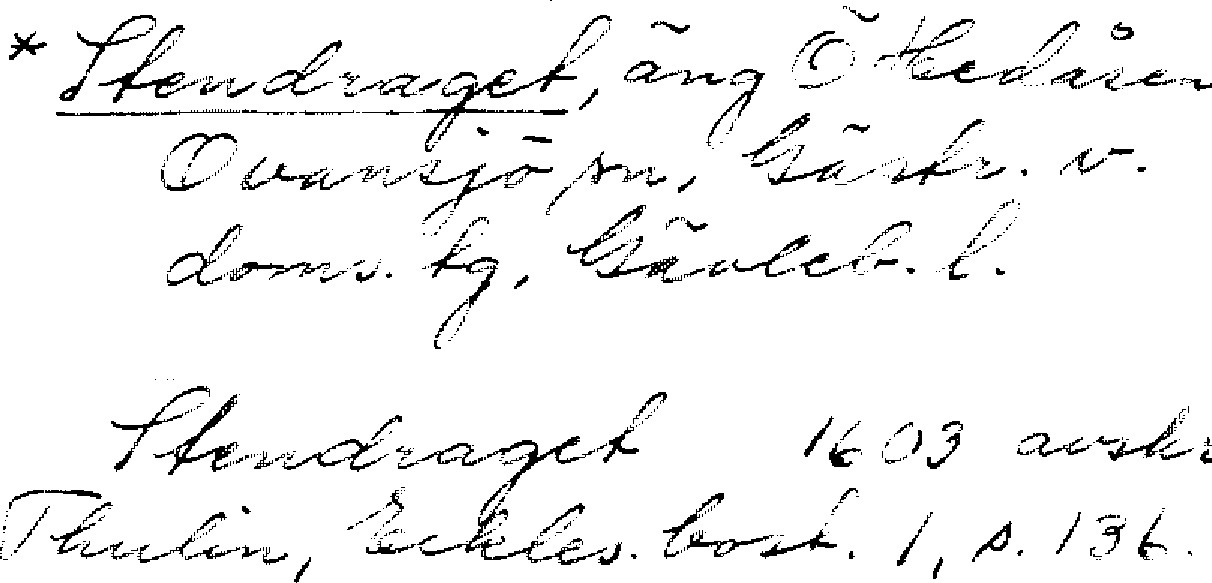 * Stendraget, äng Ö Hedåsen
Ovansjö sn, Gästr. v.
doms. tg, Gävleb. l.
Stendraget 1603 avskr
Thulin, Eckles. bost. 1, s. 136.